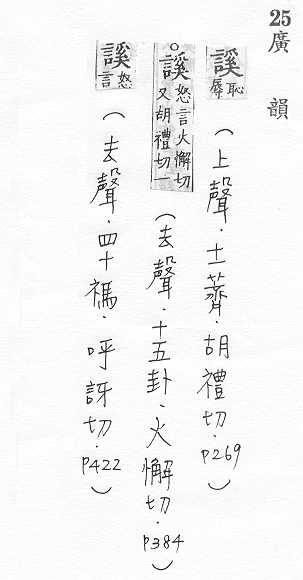 25 廣韻
謑 恥辱(上聲．十一薺．胡禮切．P269)
○謑 怒言火懈切又胡禮切一(去聲．十五卦．火懈切．P384)
謑 怒言(去聲．四十禡．呼訝切．P422)